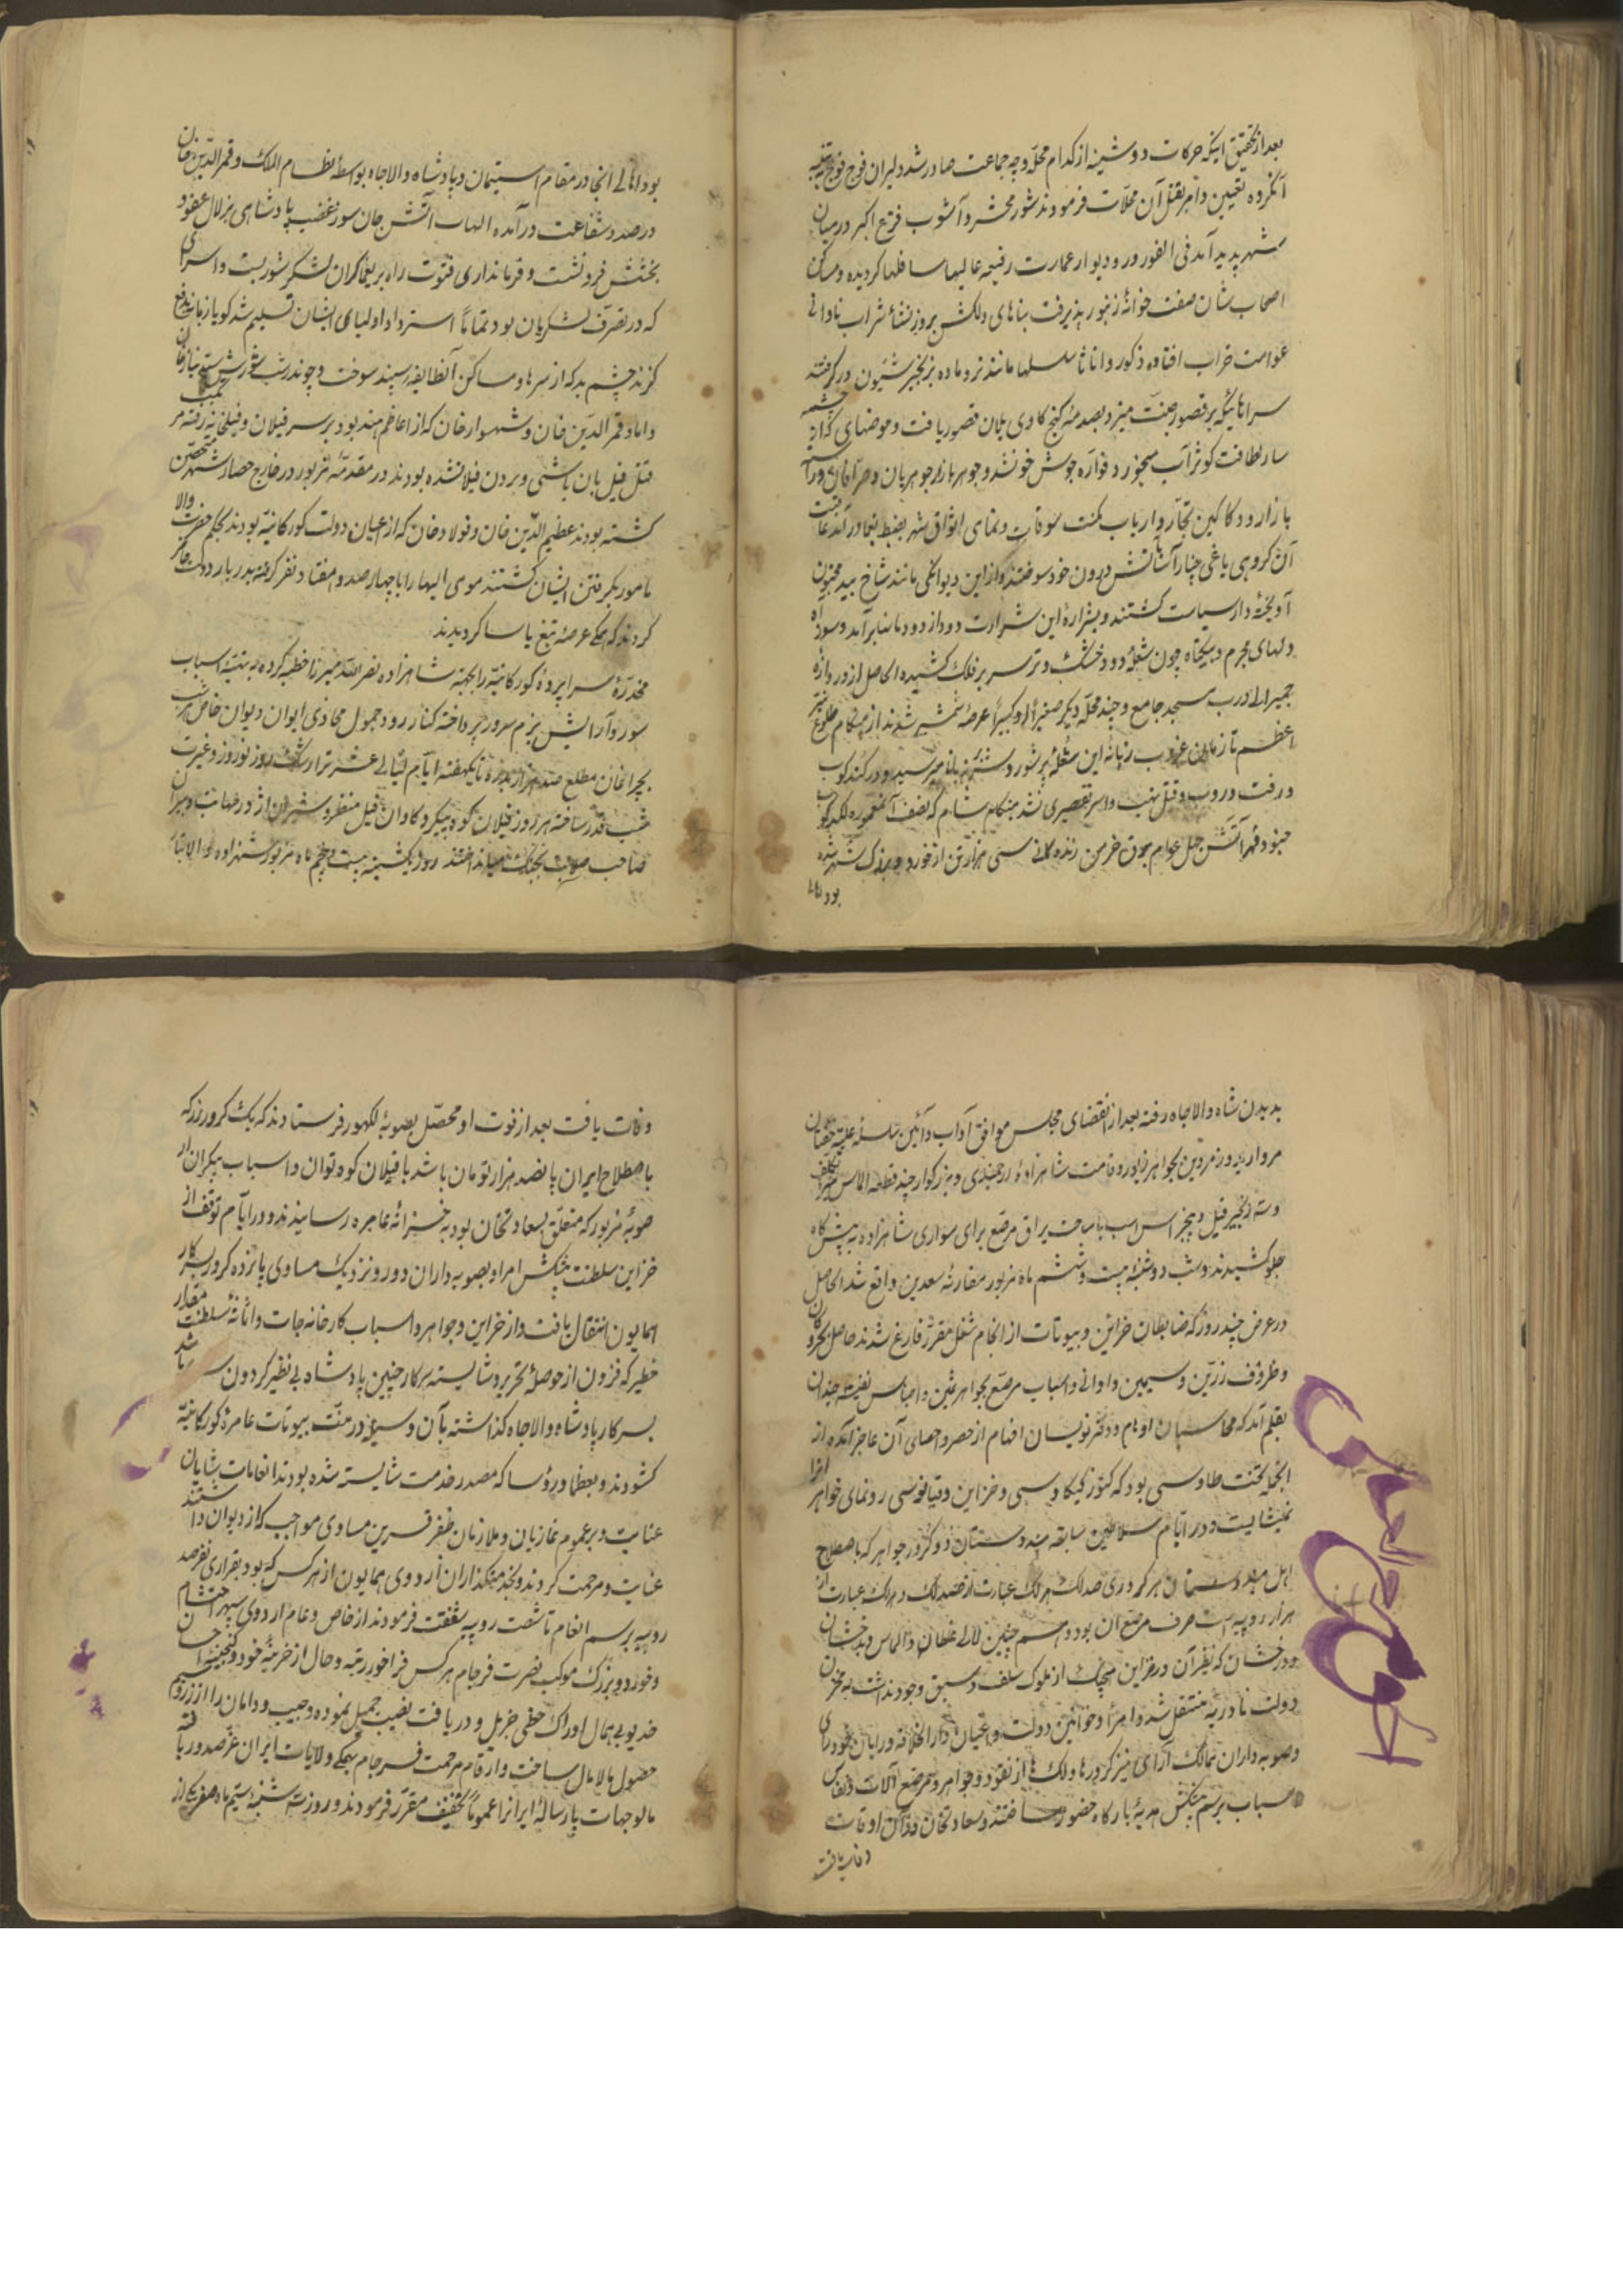 بعد از تحقیق اینکه حرکات دوشینه از کدام محله و چه جماعت صادر شد دلیران فوج فوج به تنبیه
آنگروه تعیین و امر بقتل آن محلات فرمودند شور محشر و آشوب فزع اکبر در میان
شهر پدید آمد فی الفور در و دیوار عمارت رفیعه عالیها سافلها گردیده و مساکن
اصحاب شان صفت خوانهٔ زنبور پذیرفت بناهای دلکش بروز نشأ شراب نادانی
عوامت خراب افتاده ذکور و اناث سلسلها مانند نر و ماده بزنجیر شیون در گرفتند
سراهائیکه بر قصور جنت میزد بصدمهٔ کنج کاوی یلان قصور یافت و حوضهای که از چشمه
سار لطافت کوثر آب میخورد فواره جوش خون شد و جوهر بازار جوهریان و صرافان و راسته
بازار و دکاکین تجار و ارباب مکنت سوقات و تمامی اسواق شهر بضبط یغما درآمد عاقبت
آن گروهی یاغی چنار آسا بآتش درون خود سوختند و از این دیوانگی مانند شاخ بید مجنون
آویخته دار سیاست گشتند و بشرارهٔ این شرارت دود از دودمانها برآمد و سوز آه
دلهای مجرم و بیگناه چون شعلهٔ دود خشک و تر سر بر فلک کشیده الحاصل از دروازهٔ
جمیرالی درب مسجد جامع و چند محله دیگر صغیراً و کبیراً عرضهٔ شمشیر شدند از هنگام طلوع نیر
اعظم تا زمان غروب زبانه این شعلهٔ پر شور و شر زبانه میرسید و در کند و کوب
و رفت و روب و قتل و نهب و اسر تقصیری نشد هنگام شام که نصف آنمعموره لکدکوب
جنود قهر و آتش جهل عوام برق خرمن زنده گانی سی هزار تن از خورد و بزرگ شهر شده
بود اهالی
بود اهالی آنجا در مقام استیمان و پادشاه والاجاه بواسطهٔ نظام الملک و قمرالدین خان
در صدد شفاعت درآمده التهاب آتش جان سوز غضب پادشاهی بزلال عفو و
بخشش فرو نشت و فرمانداری فتوت راه بر یغماگران لشکر شور بست و اسرای
که در تصرف لشکریان بود تماماً استرداد اولیای ایشان تسلیم شد گویا زمانه بدفع
گزند چشم بد که از سرها و مساکن آنطایفه سپند سوخت و چون در شب شورش سید نیاز خان
داماد قمرالدین خان و شهسوار خان که از اعاظم هند بود بر سر فیلان و فیلخانه رفته مرتکب
قتل فیل بان باشی و بردن فیلها شده بودند در مقدمهٔ مزبور در خارج حصار شهر متحصن
گشته بودند عظیم الدین خان و فولاد خان که از اعیان دولت گورکانیه بودند بحکم حضرت والا
مامور بگرفتن ایشان گشتند موی الیها را با چهار صد و هفتاد نفر گرفته بدربار دولت حاضر
کردند که همگی عرضهٔ تیغ یاسا گردیدند
مخدرهٔ سراپردهٔ گورکانیه را بجهته شاهزاده نصرالله میرزا خطبه کرده به تهیهٔ اسباب
سور و آرایش بزم سرور پرداخته کنار رود جمول محاذی ایوان دیوان خاص شب
بچراغان مطلع صد هزار بدر و تا یکهفته ایام لیالی عشرترا رشک روز نوروز و غیرت
شب قدر ساخته هر روز فیلان کوه پیکر و گاوان فیل منظر و شیران اژدر مهابت و ببران
صاحب صولت بجنگ میانداختند روز یکشنبه بیست و پنجم ماه مزبور شهزاده والاتبار
بدیدن شاه والاجاه رفته بعد از انقضای مجلس موافق آداب و آئین سلسله علیه خفتان
مروارید دوز مزین بجواهر زیور و قامت شاهزادهٔ ارجمندی و بزرگوار چند قطعه الماس
و سه زنجیر فیل و پنج راس اسب با ساخت یراق مرصع برای سواری شاهزاده به پیشگاه
جلو کشیدند و شب دوشنبه بیست و ششم ماه مزبور مقارنهٔ سعدین واقع شد الحاصل
در عرض چند روز که ضابطان خزاین و بیوتات از انجام شغل مقرر فارغ شدند حاصل بحر و کان
و ظروف زرین و سیمین و اوانی و اسباب مرصع بجواهر ثمین و اجناس نفیسه چندان
بقلم آمد که محاسبان اوهام و دفتر نویسان افهام از حصر و احصای آن عاجز آمده از
انجمله تخت طاوسی بود که کنوز کیکاوسی و خزاین دقیانوسی رونمای جواهر آنرا
نمیشایست و در ایام سلاطین سابقه هندوستان دو کرور جواهر که باصطلاح
اهل هندوستان هر کروری صد لک هر لک عبارت از صد لک و هر لک عبارت از
هزار روپیه است صرف مرصع آن بود و همچنین لالی غلطان و الماس و بدخشان
درخشان که نظیر آن در خزاین هیچیک از ملوک سلف و سبق وجود نداشت به مخزن
دولت نادریه منتقل شد و امرأ و خوانین دولت و اعیان دارالخلافه و رایان خودرای
و صوبه داران ممالک آرای نیز کرورها و لکها از نقود و جواهر و مرصع آلات و نفایس
اسباب برسم پیشکش هدیهٔ بارگاه حضور ساختند و سعادتخان در آن اوقات
وفات یافت
وفات یافت بعد از فوت او محصل بصوبهٔ لکهور فرستادند که یک کرور زر که
باصطلاح ایران پانصد هزار تومان باشد با فیلان کوه توان و اسباب بیکران از
صوبهٔ مزبور که متعلق بسعادتخان بود به خزانهٔ عامره رسانیدند و در ایام توقف از
خزاین سلطنت پیشکش امراء بصوبه داران دور و نزدیک مساوی پانزده کرور بسرکار
همایون انتقال یافت و از خزاین و جواهر و اسباب کارخانه جات و اثاثهٔ سلطنت مقدار
خطیر که فزون از حوصلهٔ تحریر و شایسته سرکار چنین پادشاه بی نظیر گردون سریر باشد
بسرکار پادشاه والاجاه گذاشته بآن وسیله در منت بیوتات عامرهٔ گورکانیه
گشودند و بعظما و رؤسا که مصدر خدمت شایسته شده بودند انعامات شایان
عنایت و بر عموم غازیان و ملازمان ظفر قرین مساوی مواجب که از دیوان داشتند
عنایت و مرحمت کردند و بخدمتگذاران اردوی همایون از هر کس که بود بقراری نفر صد
روپیه برسم انعام تا شصت روپیه شفقت فرمودند از خاص و عام اردوی سپهر احتشام
و خورد و بزرگ موکب نصرت فرجام هر کس فراخور رتبه و حال از خزینهٔ خود و گنجینهٔ احسان
خدیو بی همال ادراک حظی جزیل و دریافت نصیب جمیل نموده و جیب و دامان را از زر و سیم
حصول مالامال ساخت و ارقام مرحمت فرجام بهمگی ولایات ایران عز صدور یافته
مالوجهات یکسالهٔ ایرانرا عموماً بتخفیف مقرر فرمودند و روز سه شنبه سیم ماه صفر یکی از